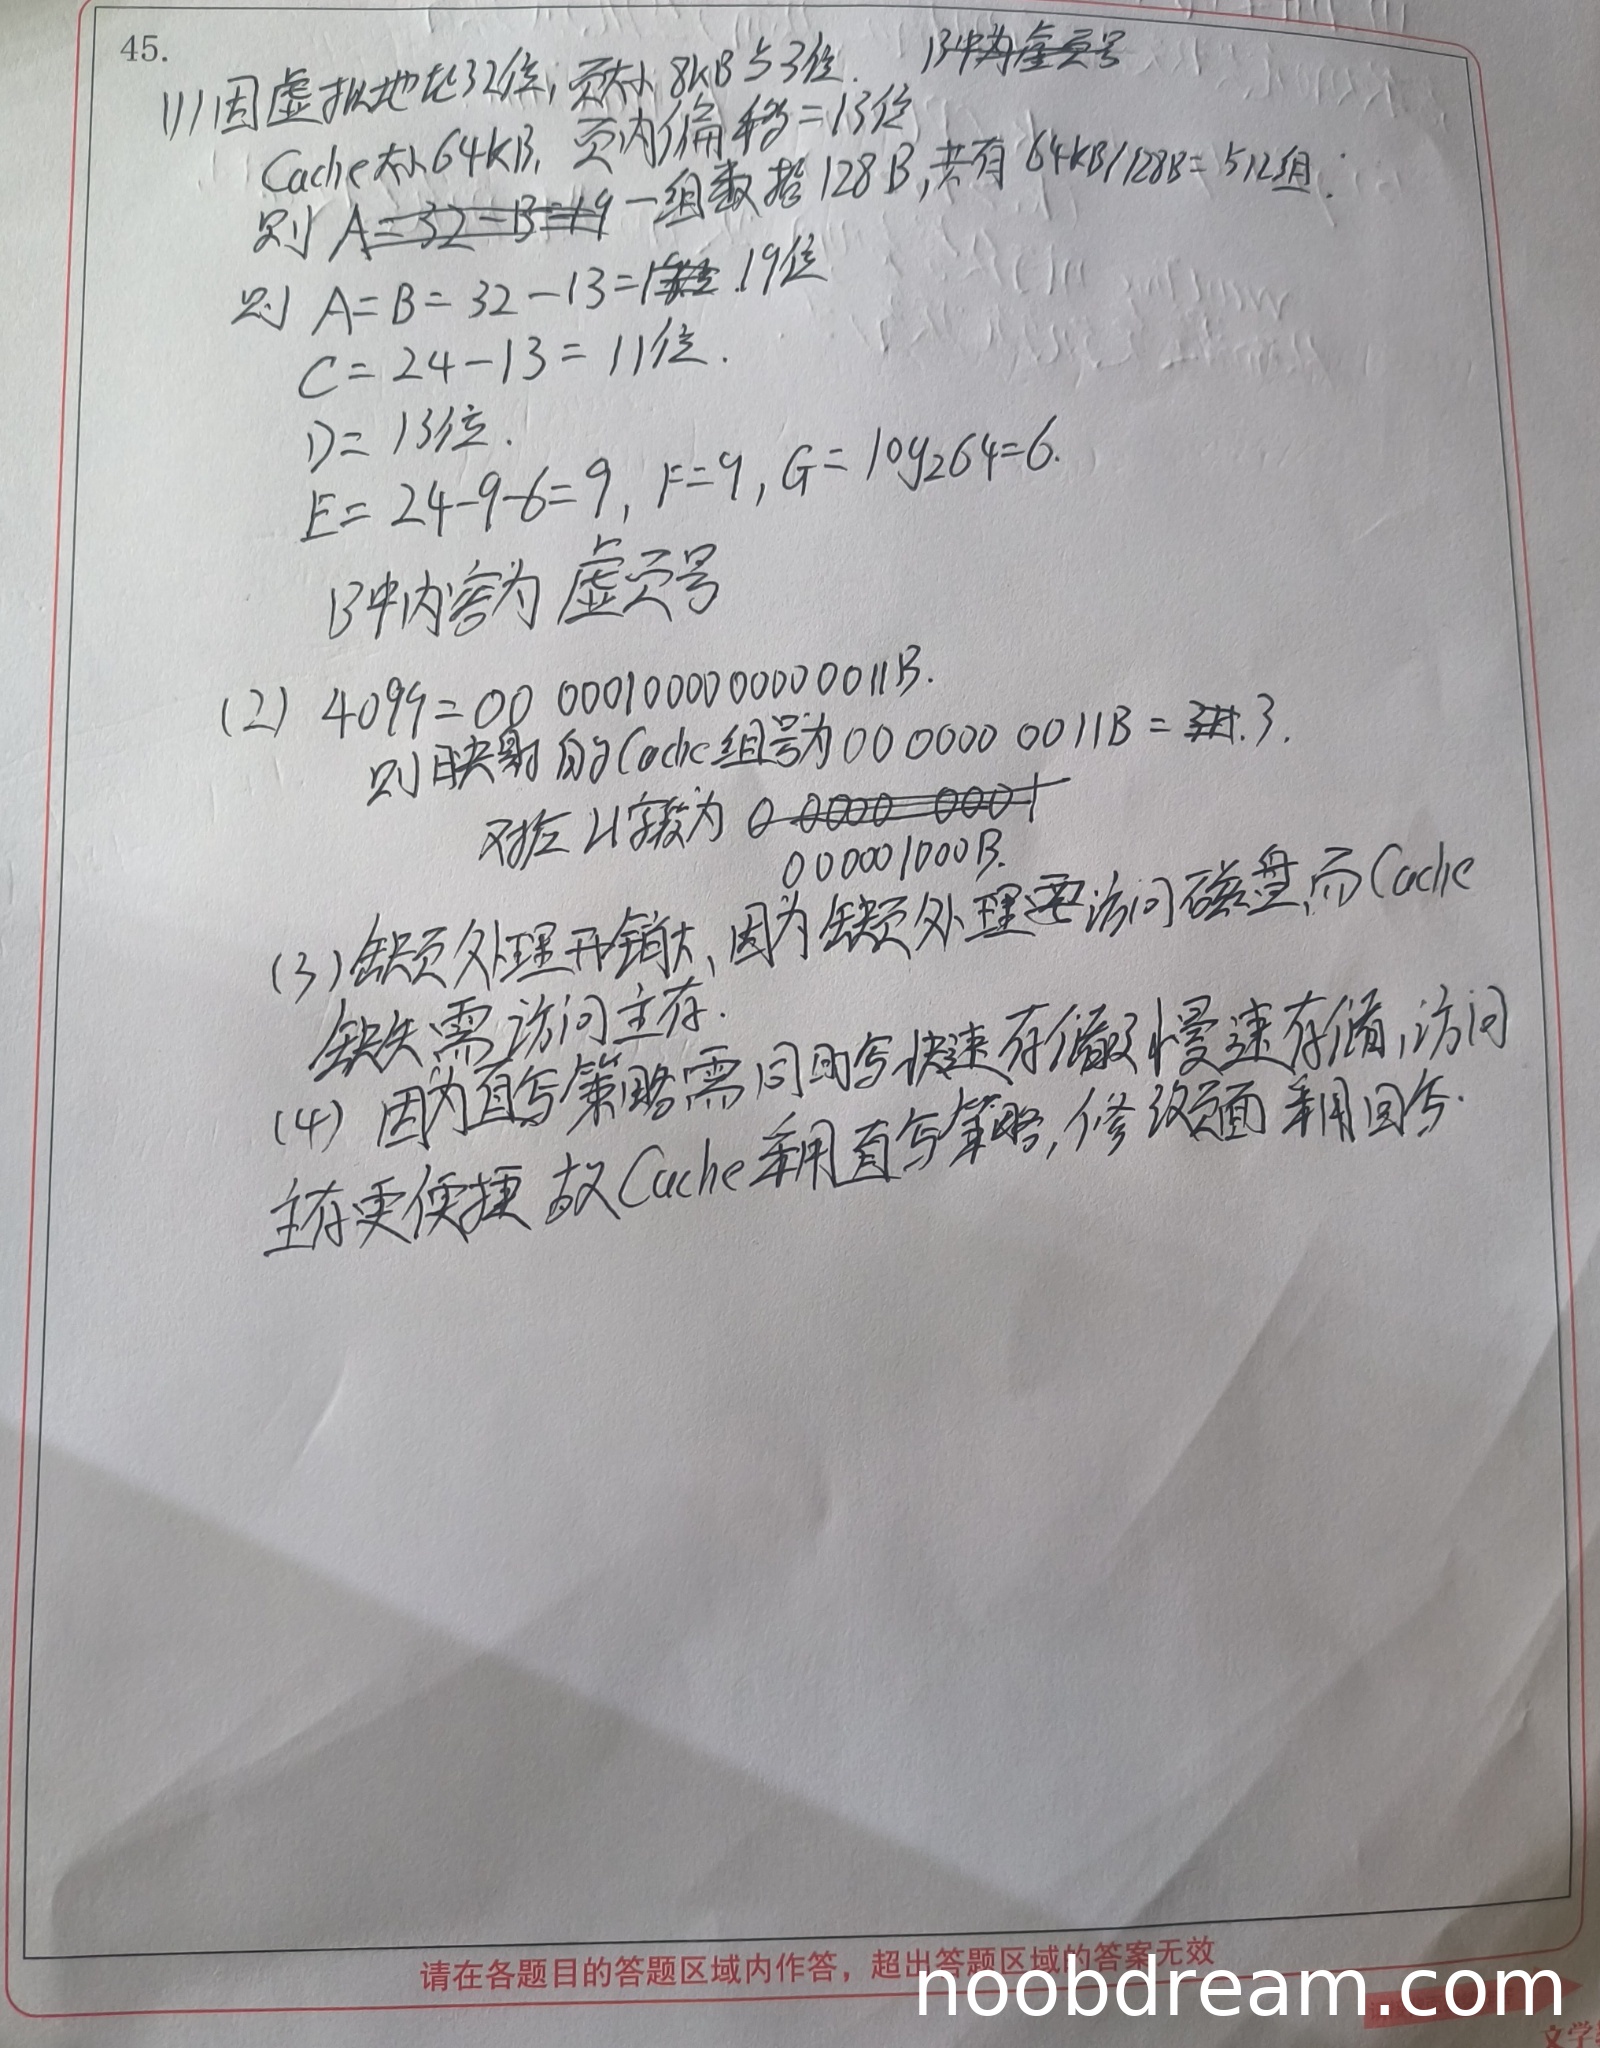 45.
(1) 因虚拟地址32位, 页大小 8KB 占3位.
Cache大小64KB, 页内偏移=13位
则 一组数据128B, 共有 64KB/128B=512组.
则 A=B=32-13= 19位
C=24-13=11位.
D=13位.
E=24-9-6=9, F=9, G=log₂64=6.
B中内容为 虚页号
(2) 4099=00 0001000000000011B.
则映射的Cache组号为00 0000 0011B= 3.
对应H字段为
000001000B.
(3)缺页处理开销大, 因为缺页处理要访问磁盘,而Cache
缺失需访问主存.
(4) 因为直写策略需同时写快速存储及慢速存储,访问
主存更便捷 故Cache采用直写策略,修改页面采用回写.
请在各题目的答题区域内作答，超出答题区域的答案无效
noobdream.com